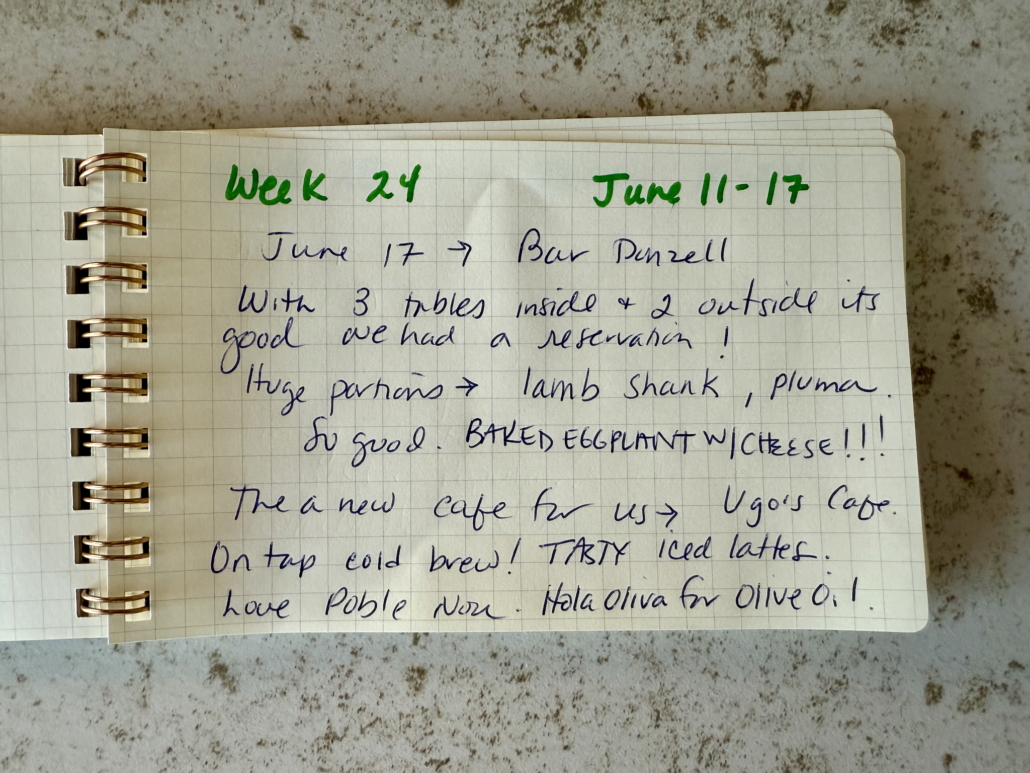 Week 24 June 11-17
June 17 → Bar Denzell
With 3 tables inside + 2 outside its
good we had a reservation!
Huge portions → lamb shank, pluma.
So good. BAKED EGGPLANT W/CHEESE!!!
The a new cafe for us → Ugo's Cafe.
On tap cold brew! TASTY iced lattes.
Love Poble Nou. Hola Oliva for Olive Oil.